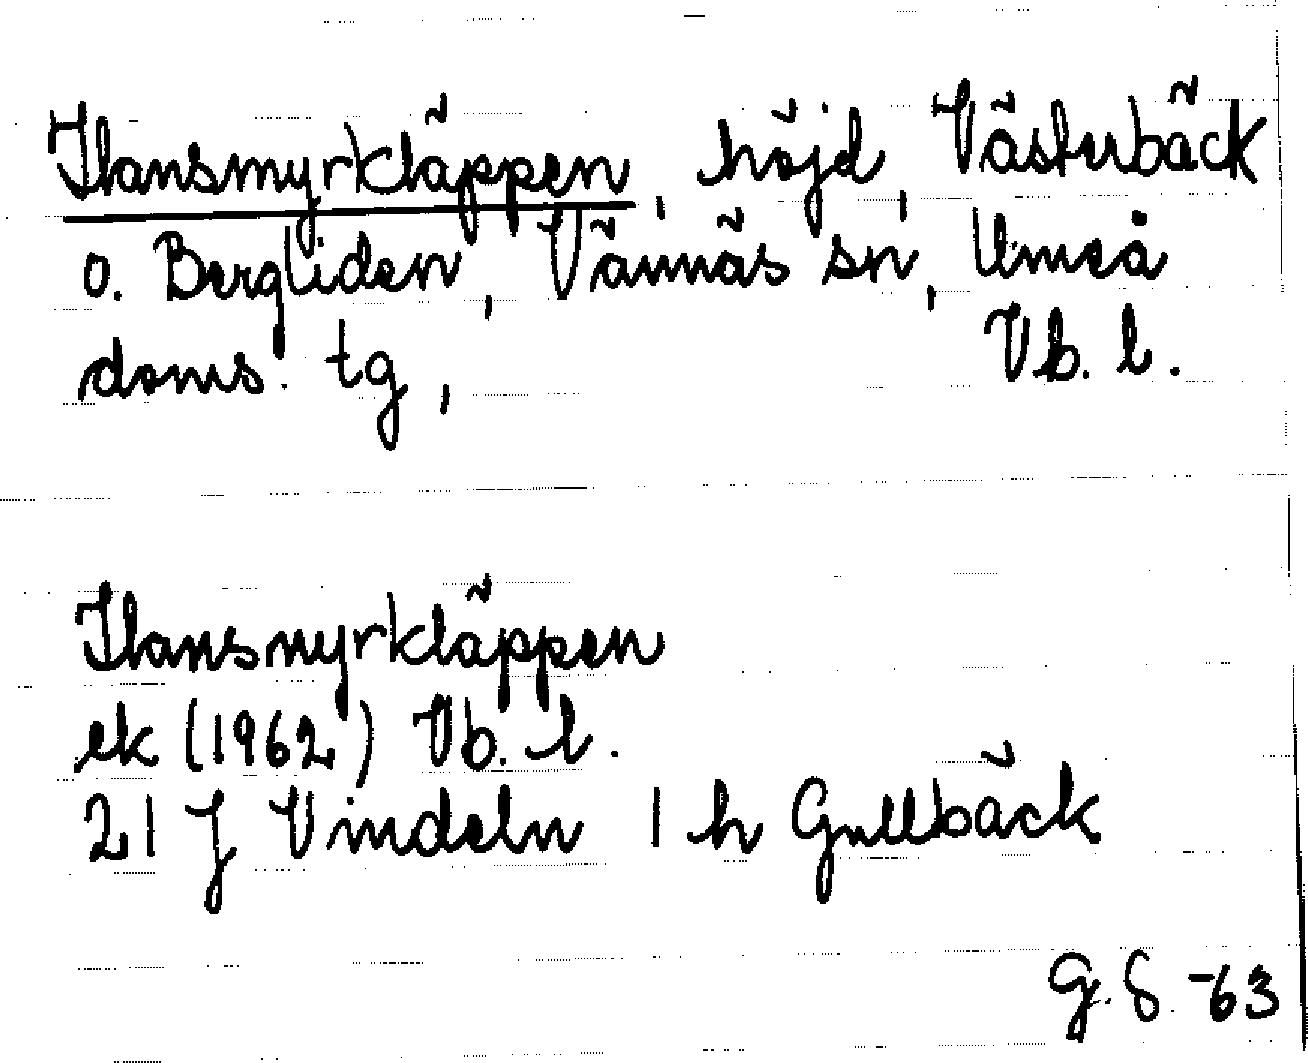 Hansmyrkläppen, höjd, Västerbäck
o. Bergliden, Vännäs sn, Umeå
doms. tg, Vb. l.
Hansmyrkläppen
ek (1962) Vb. l.
21 J Vindeln 1 h Gullbäck
G. S. -63